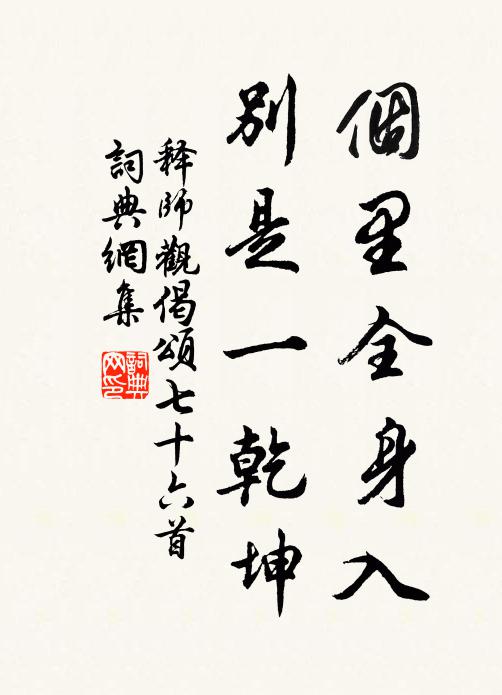 個里全身入
別是一乾坤
释師觀偈頌七十六首
詞典網集
詞典網印